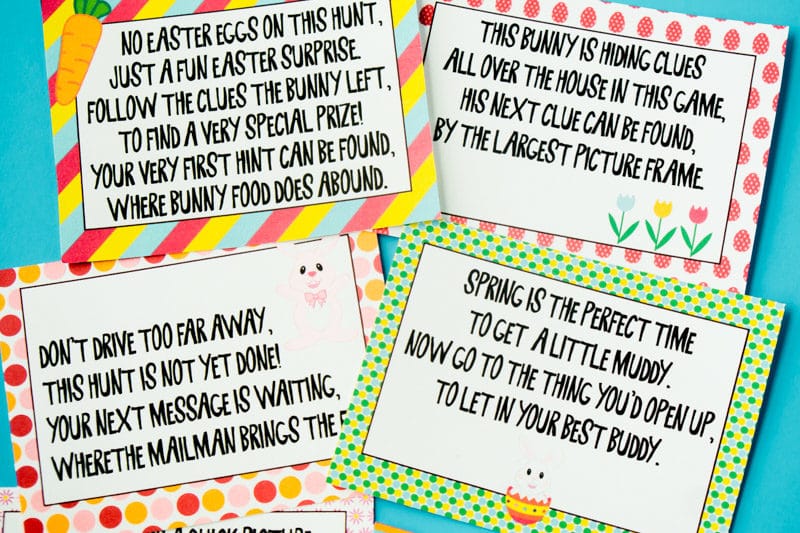 NO EASTER EGGS ON THIS HUNT,
JUST A FUN EASTER SURPRISE
FOLLOW THE CLUES THE BUNNY LEFT,
TO FIND A VERY SPECIAL PRIZE!
YOUR VERY FIRST HINT CAN BE FOUND,
WHERE BUNNY FOOD DOES ABOUND.
THIS BUNNY IS HIDING CLUES
ALL OVER THE HOUSE IN THIS GAME,
HIS NEXT CLUE CAN BE FOUND,
BY THE LARGEST PICTURE FRAME.
DON'T DRIVE TOO FAR AWAY,
THIS HUNT IS NOT YET DONE!
YOUR NEXT MESSAGE IS WAITING,
WHERETHE MAILMAN BRINGS THE
SPRING IS THE PERFECT TIME
TO GET A LITTLE MUDDY.
NOW GO TO THE THING YOU'D OPEN UP,
TO LET IN YOUR BEST BUDDY.
A QUICK PICTURE